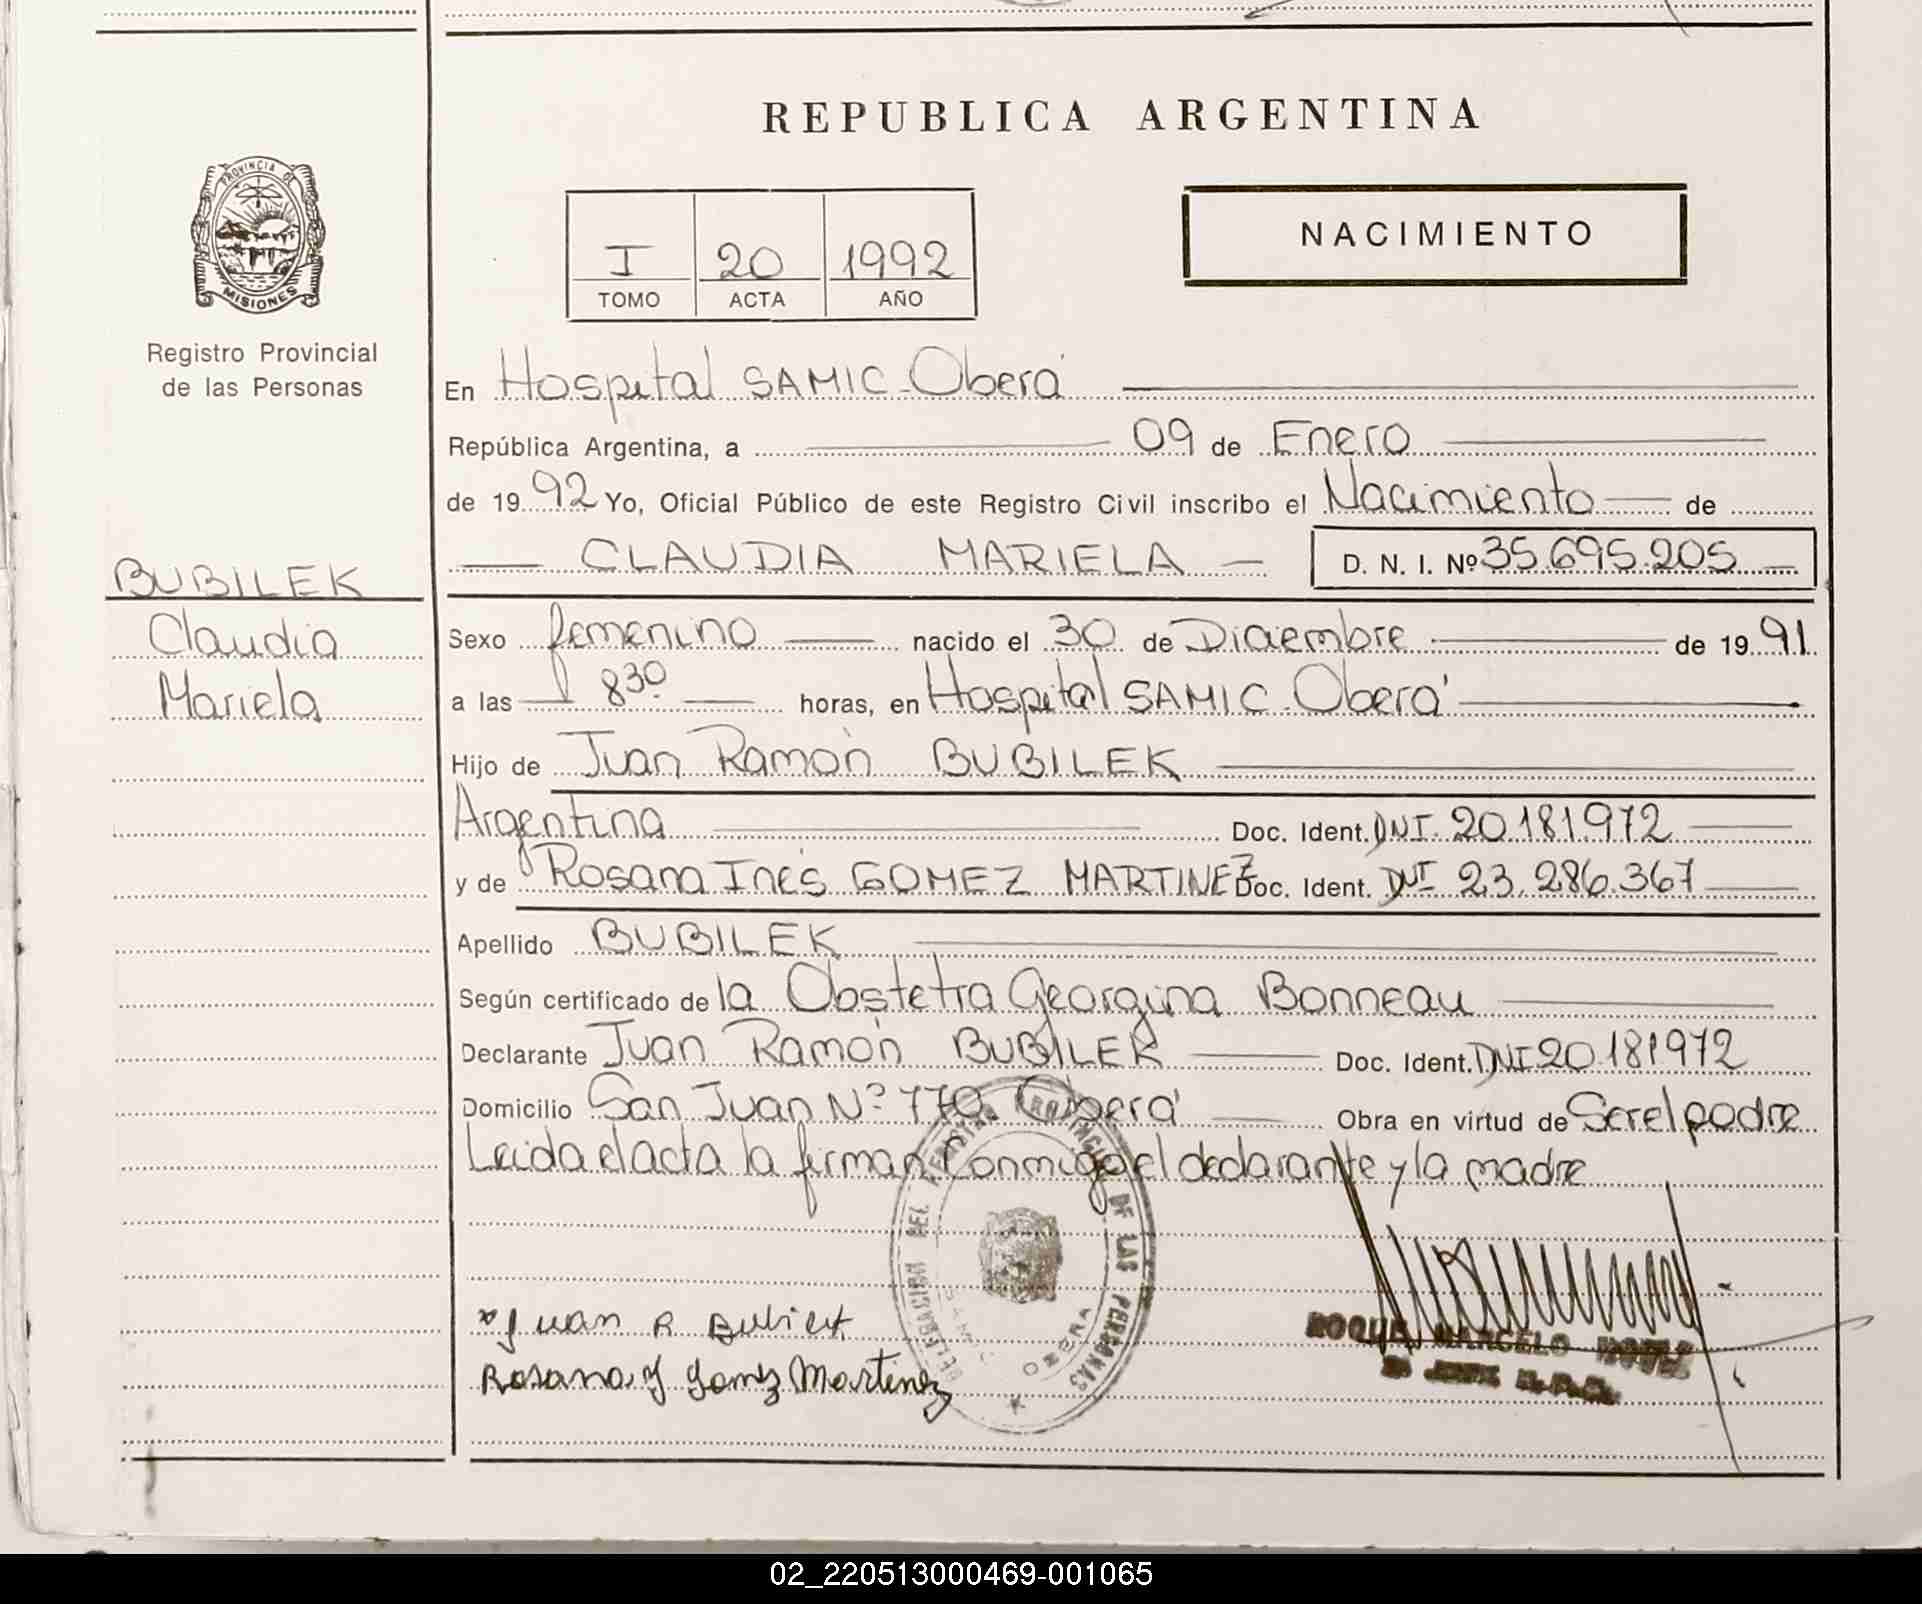 REPUBLICA ARGENTINA
PROVINCIA DE
MISIONES
Registro Provincial
de las Personas
I 20 1992
TOMO ACTA AÑO
NACIMIENTO
En Hospital SAMIC Oberá
República Argentina, a 09 de Enero
de 1992 Yo, Oficial Público de este Registro Civil inscribo el Nacimiento de
CLAUDIA MARIELA D. N. I. Nº 35.695.205
BUBILEK
Claudia
Mariela
Sexo femenino nacido el 30 de Diciembre de 1991
a las 8 30 horas, en Hospital SAMIC Oberá
Hijo de Juan Ramón BUBILEK
Argentina Doc. Ident. DNI 20.181.972
y de Rosana Inés GOMEZ MARTINEZ Doc. Ident. DNI 23.286.367
Apellido BUBILEK
Según certificado de la Obstetra Georgina Bonneau
Declarante Juan Ramón BUBILEK Doc. Ident. DNI 20.181972
Domicilio San Juan Nº 770. Oberá Obra en virtud de Ser el padre
Leida el acta la firman conmigo el declarante y la madre
DELEGACION DEL REGISTRO PROVINCIAL DE LAS PERSONAS
OBERA
Juan R Bubilek
Rosana I Gomez Martinez
ROQUE MARCELO
02_220513000469-001065